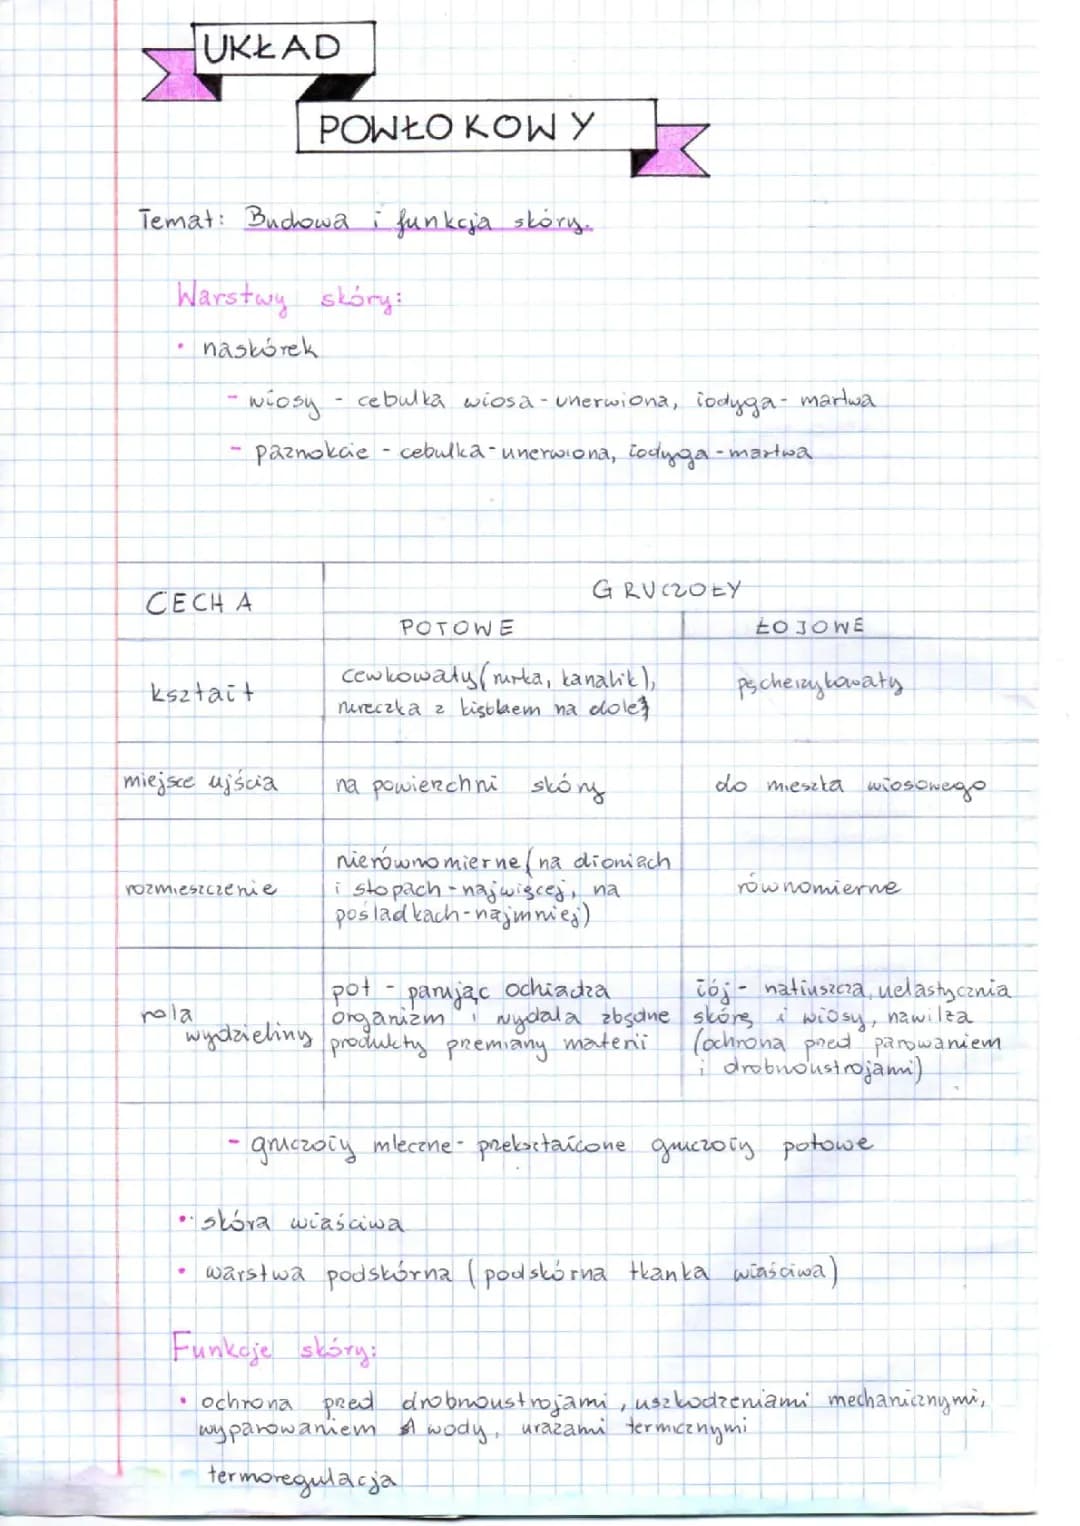 UKŁAD
POWŁOKOWY
Temat: Budowa i funkcja skóry.
Warstwy skóry:
• naskórek
- włosy - cebulka włosa - unerwiona, łodyga - martwa
- paznokcie - cebulka - unerwiona, łodyga - martwa
CECHA
GRUCZOŁY
POTOWE
ŁOJOWE
kształt
cewkowaty (rurka, kanalik),
rureczka z kłębkiem na dole
pęcherzykowaty
miejsce ujścia
na powierzchni skóry
do mieszka włosowego
rozmieszczenie
nierównomierne (na dłoniach
i stopach - najwięcej, na
pośladkach - najmniej)
równomierne
rola
wydzieliny
pot - parując ochładza
organizm i wydala zbędne
produkty przemiany materii
łój - natłuszcza, uelastycznia
skórę i włosy, nawilża
(ochrona przed parowaniem
i drobnoustrojami)
- gruczoły mleczne - przekształcone gruczoły potowe
• skóra właściwa
• warstwa podskórna (podskórna tkanka właściwa)
Funkcje skóry:
• ochrona przed drobnoustrojami, uszkodzeniami mechanicznymi,
wyparowaniem wody, urazami termicznymi
termoregulacja